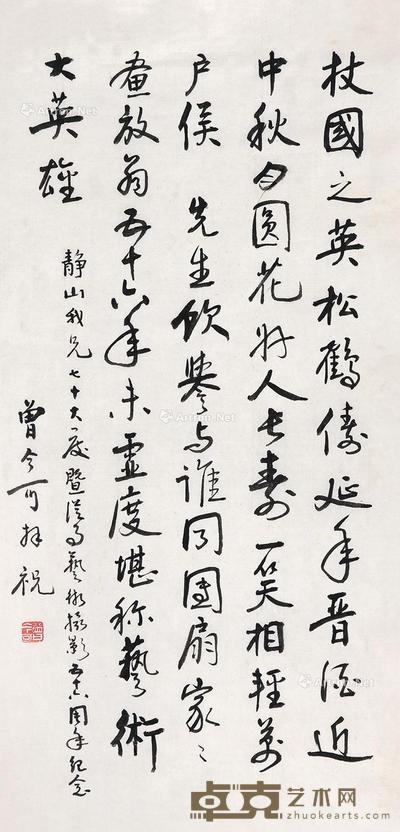 杖國之英松鶴儔延年晋酒近
中秋月圓花好人長壽一笑天相輕萬
户侯 先生飲譽与誰同團扇家〻
畫放翁五十六年未虛度堪称藝術
大英雄
静山我兄七十大慶暨從事藝術攝影五十六周年紀念
曾今可拜祝
卓克艺术网
www.zhuokearts.com